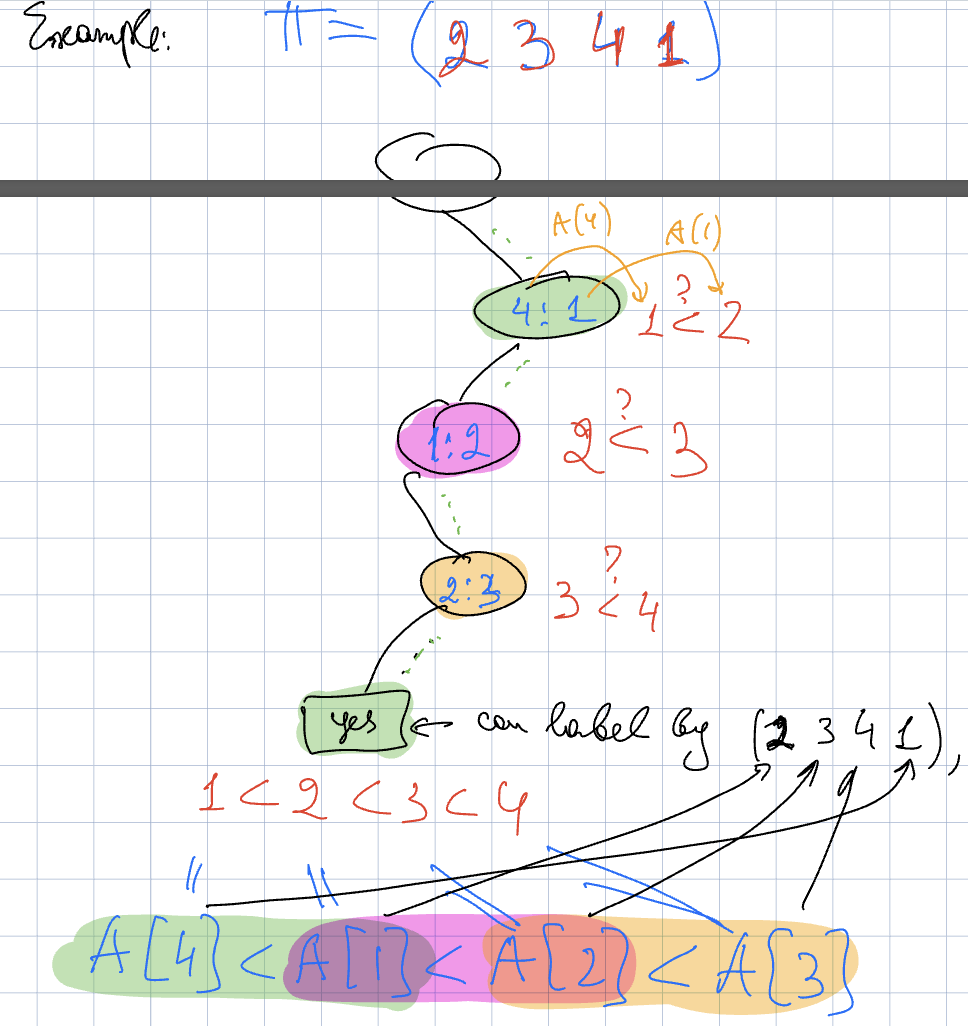 Example: π = (2 3 4 1)
A(4) A(1)
4:1 1 ?< 2
1:2 2 ?< 3
2:3 3 ?< 4
yes ← can label by (2 3 4 1),
1 < 2 < 3 < 4
A[4] < A[1] < A[2] < A[3]